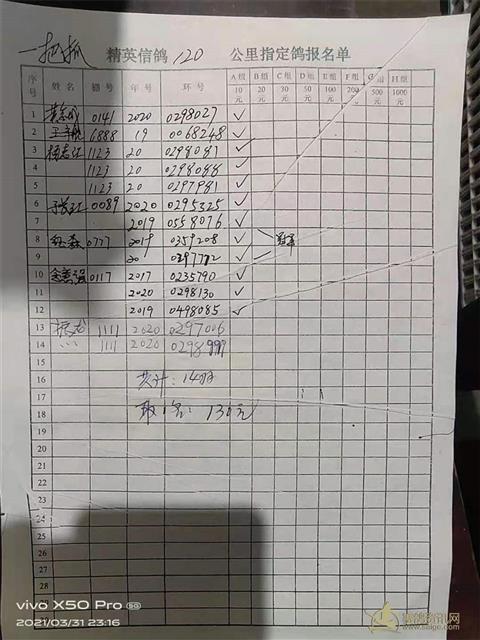 一把抓 精英信鸽 120 公里指定鸽报名单
序号 姓名 棚号 年号 环号 A组 B组 C组 D组 E组 F组 G组 H组
10元 20元 30元 50元 100元 200元 500元 1000元
1 0141 2020 0298027 ✓
2 6888 19 0068248 ✓
3 杨志江 1123 20 0298081 ✓
4 1123 20 0298088 ✓
5 1123 20 0297981 ✓
6 0089 2020 0295325 ✓
7 2019 0558076 ✓
8 0777 2019 0359208 ✓
9 20 0297772 ✓
10 0117 2017 0235790 ✓
11 2020 0298130 ✓
12 2019 0498085 ✓
13 1111 2020 0297006
14 1111 2020 0298999
15
16 共计:14羽
17
18 取1名:130元
19
20
21
22
23
24
25
26
27
28
vivo X50 Pro 5G
2021/03/31 23:16
赛鸽资讯网
www.saige.com